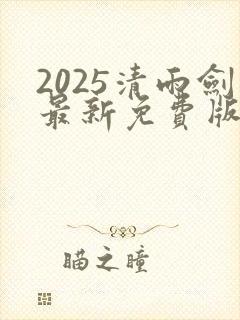 2025清雨劍
最新免費版
瞄之瞳